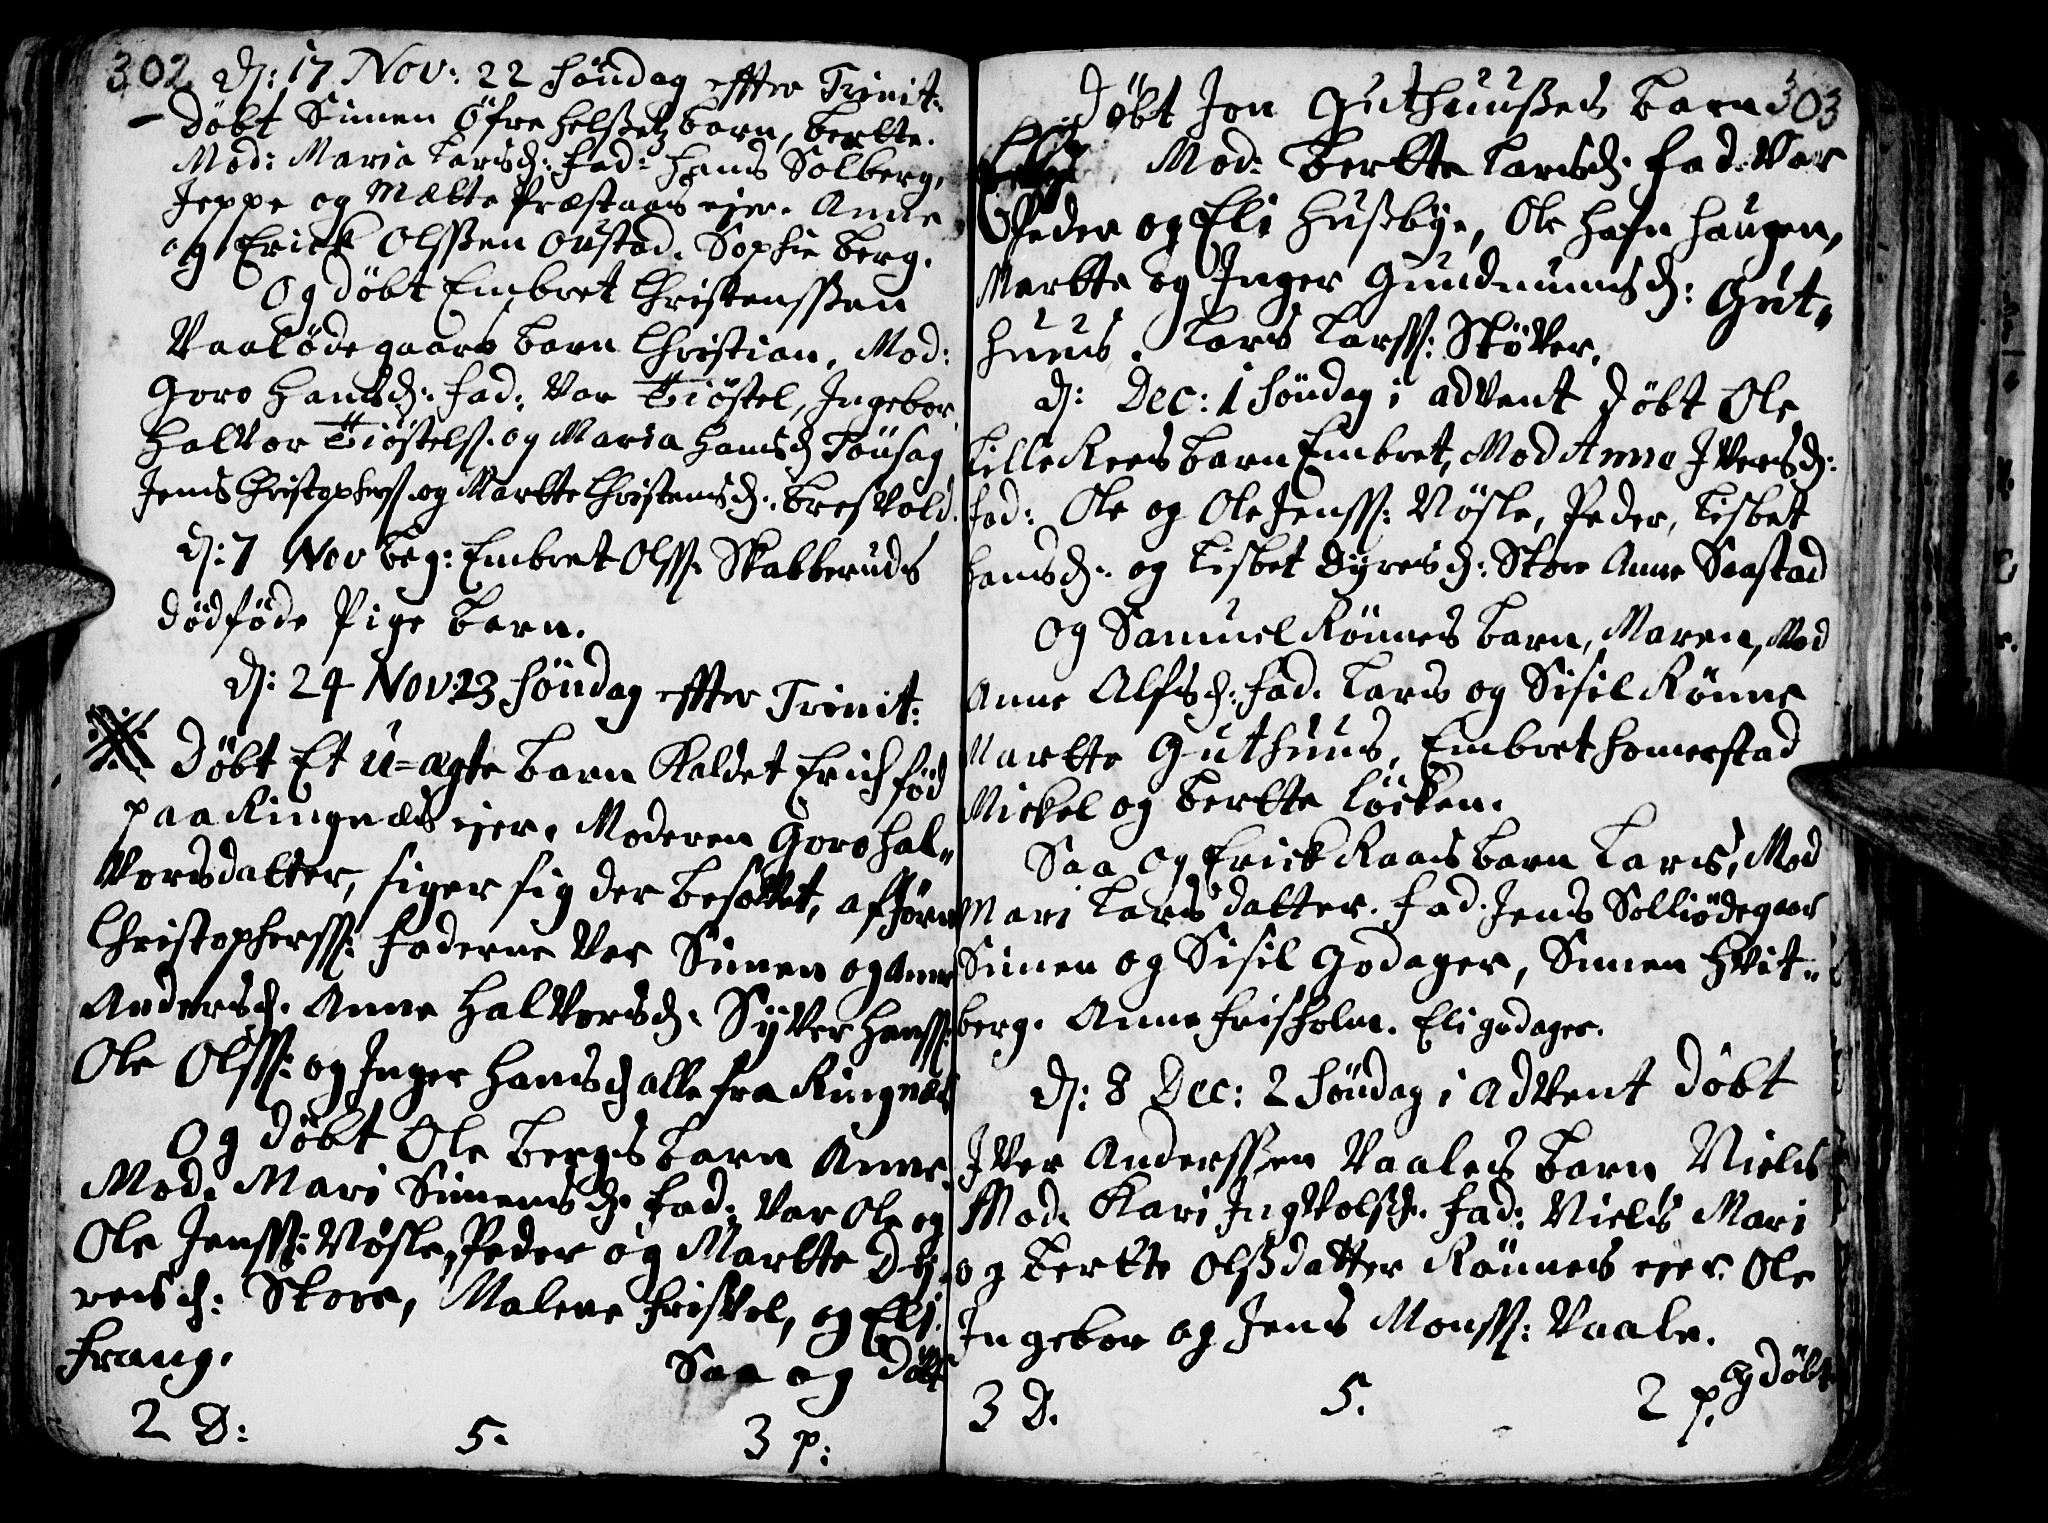 302. d: 17 Nov: 22 Söndag effter Trinit:
Döbt Simen Öfre Helßetz barn, Berthe.
Mod: Maria Larsd: Fad: Hans Solberg,
Jeppe og Mætte Præstaas eier. Anne
og Erick Olsßen Oustad. Sophie Berg.
Og döbt Embret Christensßen
Vaalödegaars barn Christian, Mod:
Goro Hansd: Fad: Var Tiöstel, Ingebor
Halvor Tiöstels. og Maria Hansd
Jens Christophers og Marthe Christensd: Bresvold.
d: 7 Nov beg: Embret Olss: Skabberuds
dödföde Pige barn.
d: 24 Nov: 23 Söndag effter Trinit:
Döbt Et u=ægte barn Kaldet Erich föd
paa Ringnæs eier. Moderen Goro Hal„
vorsdatter, siger sig der besovet, af Jörn
Christopherss: Faderne Var Simen og Anne
Andersd. Anne Halvorsd: Syver Hanss:
Ole Olss: og Inger Hansd alle fra Ringnæs
Og döbt Ole Bergs barn Anne.
Mod. Mari Simensd: Fad: Var Ole og
Ole Jenss: Nösle, Peder og Marthe Dy„
resd: Skore, Malene Friskol, og Eli
Frang.
Saa og döbt
2 D: 5. 3 p:
Döbt Jon Guthuusßes barn 303
Mod: Berthe Larsd: Fad: Var
Peder og Eli Hußbye, Ole Hafn Haugen,
Marthe og Inger Gundmunsd: Gut„
huus. Lars Larss: Sköver.
d: Dec: 1 Söndag i advent Döbt Ole
Lille Rees barn Embret, Mod Anne Iversd:
Fad: Ole og Ole Jenss: Nösle, Peder, Lisbet
Hansd: og Lisbet Dyresd: Skore Anne Saastad
Og Samuel Rönnes barn, Maren, Mod
Anne Alfsd: Fad. Lars og Sisil Rönne
Marthe Guthuus, Embret Homerstad
Mickel og Berthe Löcken.
Saa og Erick Raas barn Lars, Mod
Mari Lars datter. Fad. Jens Solliödegaar
Simen og Sisil Godager, Simen Hvit„
berg. Anne Frisholm. Eli godager.
d: 8 Dec: 2 Söndag i advent Döbt
Iver Andersßen Vaales barn Niels
Mod. Kari Ingvolsd. Fad: Niels Mari
og Berthe Olsßdatter Rönnes eier. Ole
Ingebor og Jens Monss: Vaale.
og döbt
3 D. 5. 2 p.